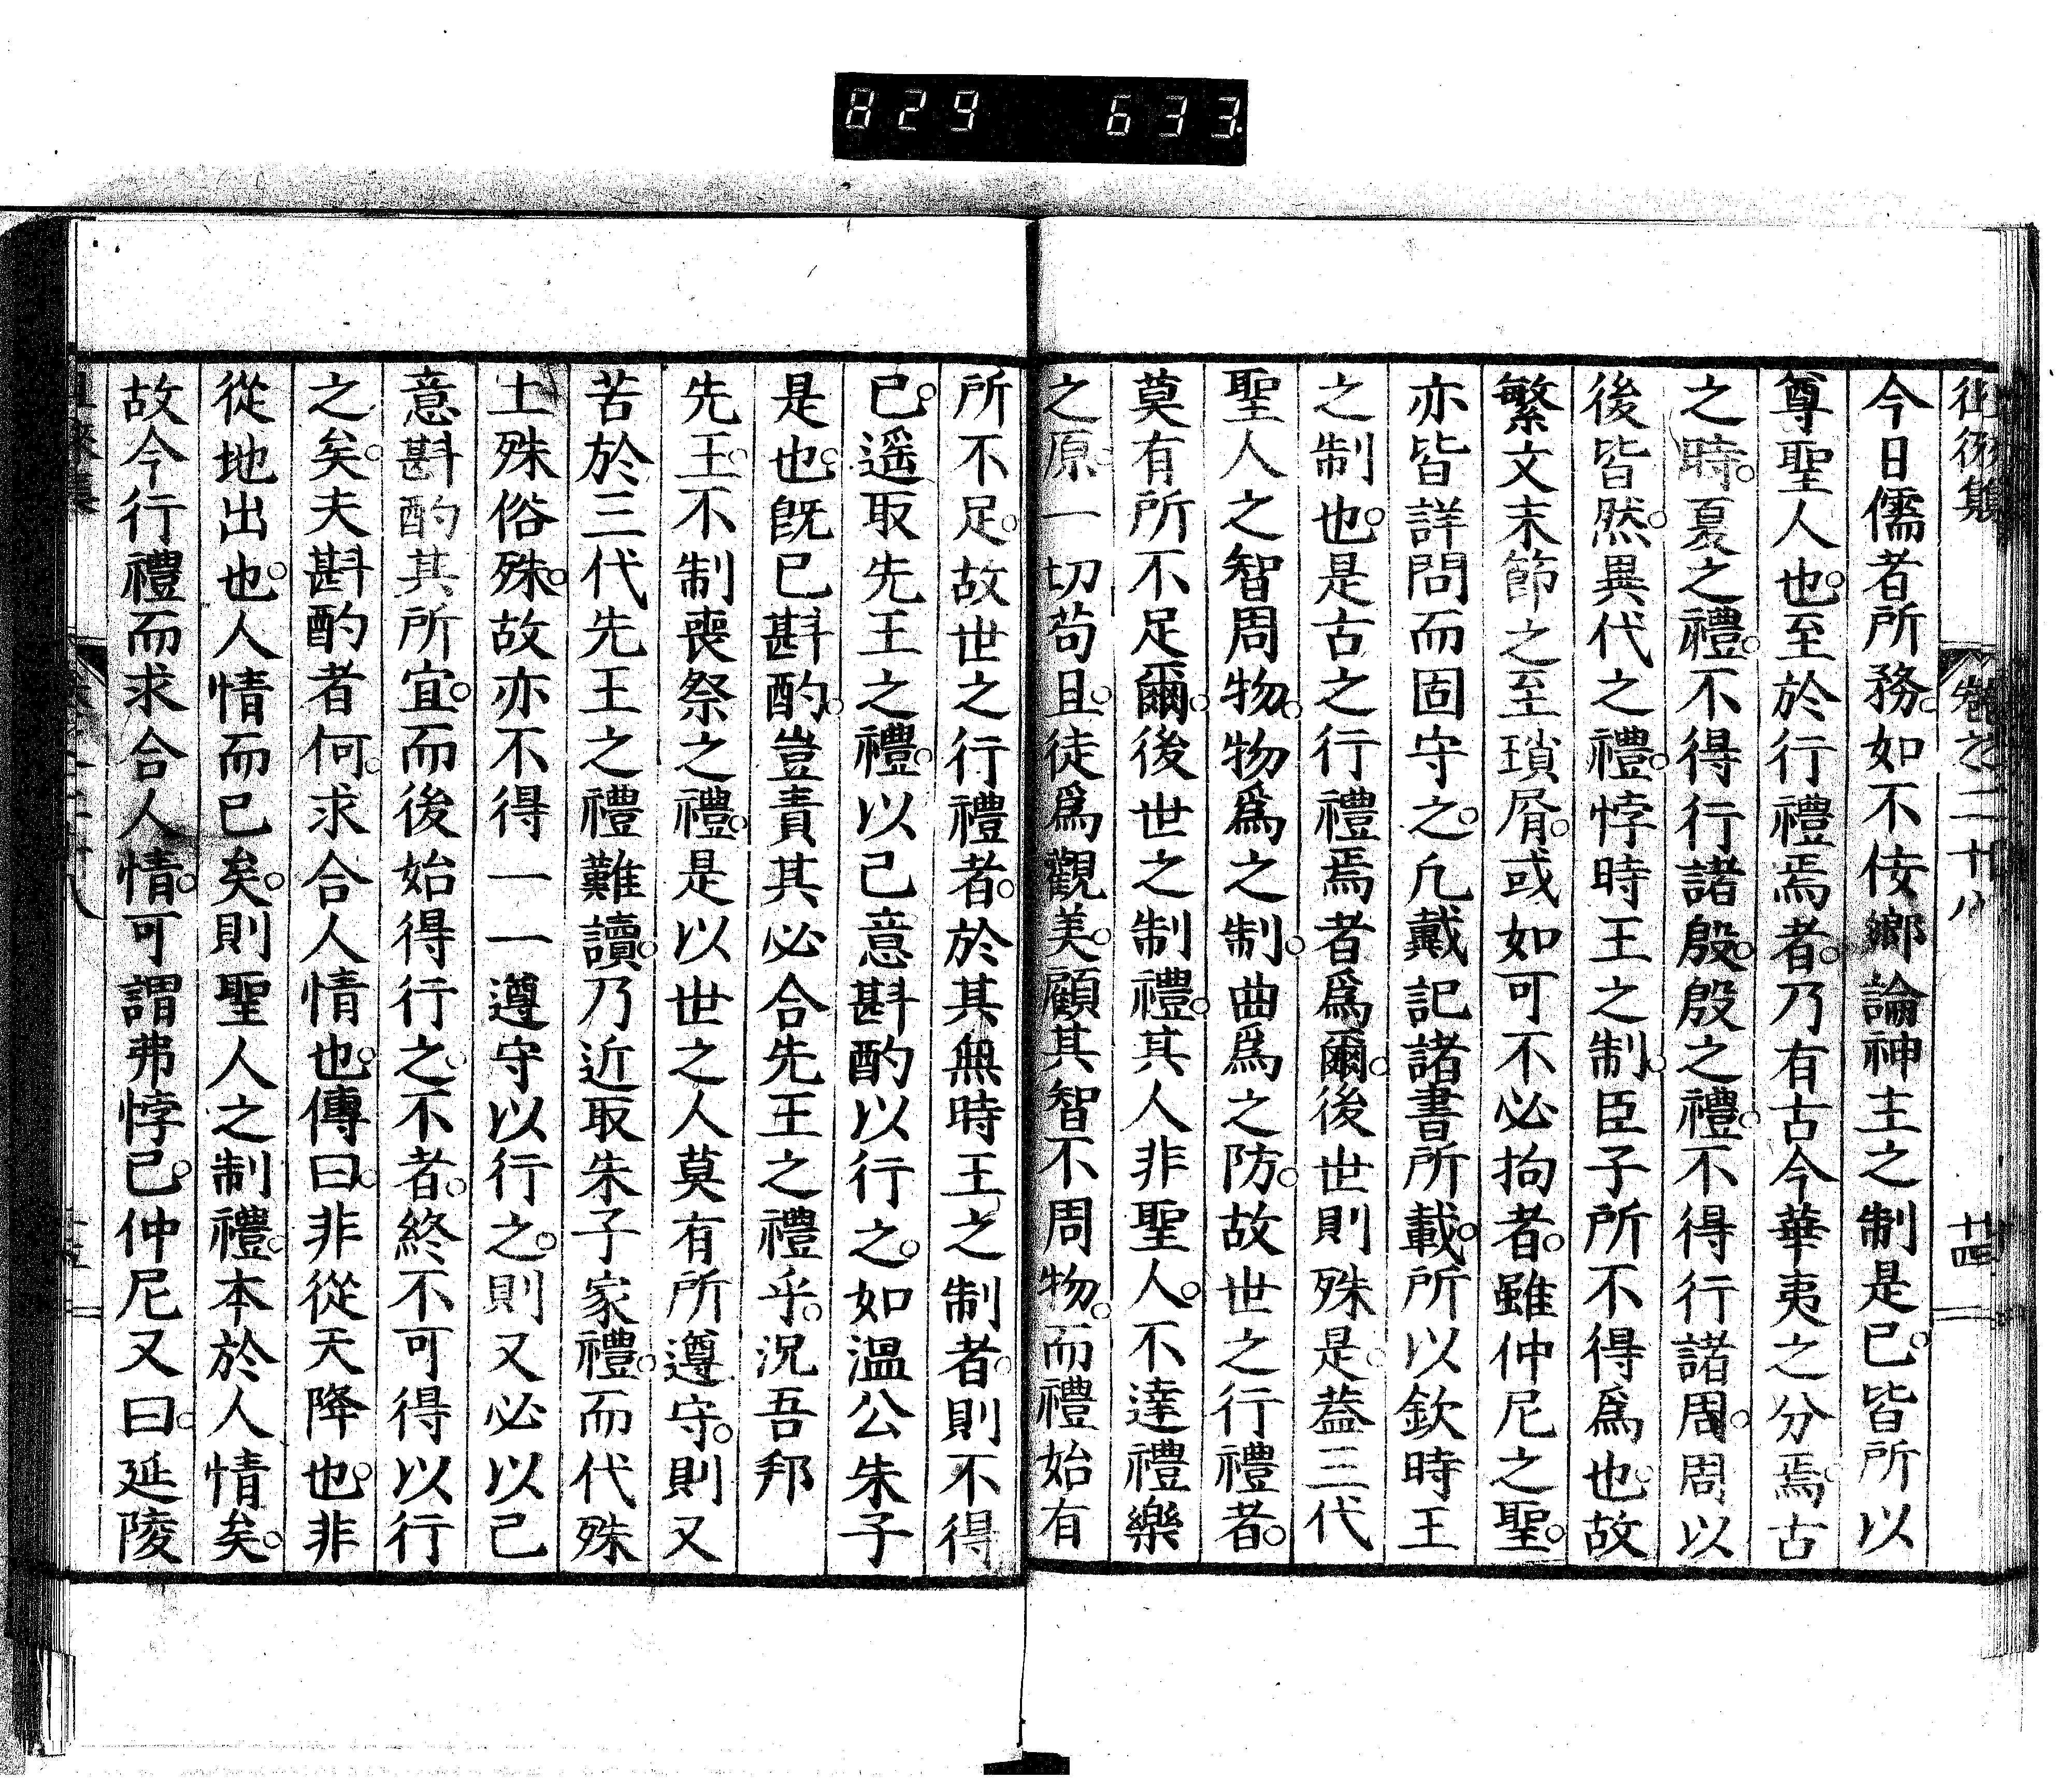 829 633
今日儒者所務。如不佞鄉論神主之制是已。皆所以
尊聖人也。至於行禮焉者。乃有古今華夷之分焉。古
之時。夏之禮。不得行諸殷。殷之禮。不得行諸周。周以
後皆然。異代之禮。悖時王之制。臣子所不得爲也。故
繁文末節之至瑣屑。或如可不必拘者。雖仲尼之聖。
亦皆詳問而固守之。凡戴記諸書所載。所以欽時王
之制也。是古之行禮焉者爲爾。後世則殊是。蓋三代
聖人之智周物。物爲之制。曲爲之防。故世之行禮者。
莫有所不足爾。後世之制禮。其人非聖人。不達禮樂
之原。一切苟且。徒爲觀美。顧其智不周物。而禮始有
所不足。故世之行禮者。於其無時王之制者。則不得
已。遥取先王之禮。以己意斟酌以行之。如溫公朱子
是也。旣已斟酌。豈責其必合先王之禮乎。況吾邦
先王。不制喪祭之禮。是以世之人莫有所遵守。則又
苦於三代先王之禮難讀。乃近取朱子家禮。而代殊
土殊俗殊。故亦不得一一遵守以行之。則又必以己
意斟酌其所宜。而後始得行之。不者。終不可得以行
之矣。夫斟酌者何。求合人情也。傳曰。非從天降也。非
從地出也。人情而已矣。則聖人之制禮。本於人情矣。
故今行禮而求合人情。可謂弗悖已。仲尼又曰。延陵